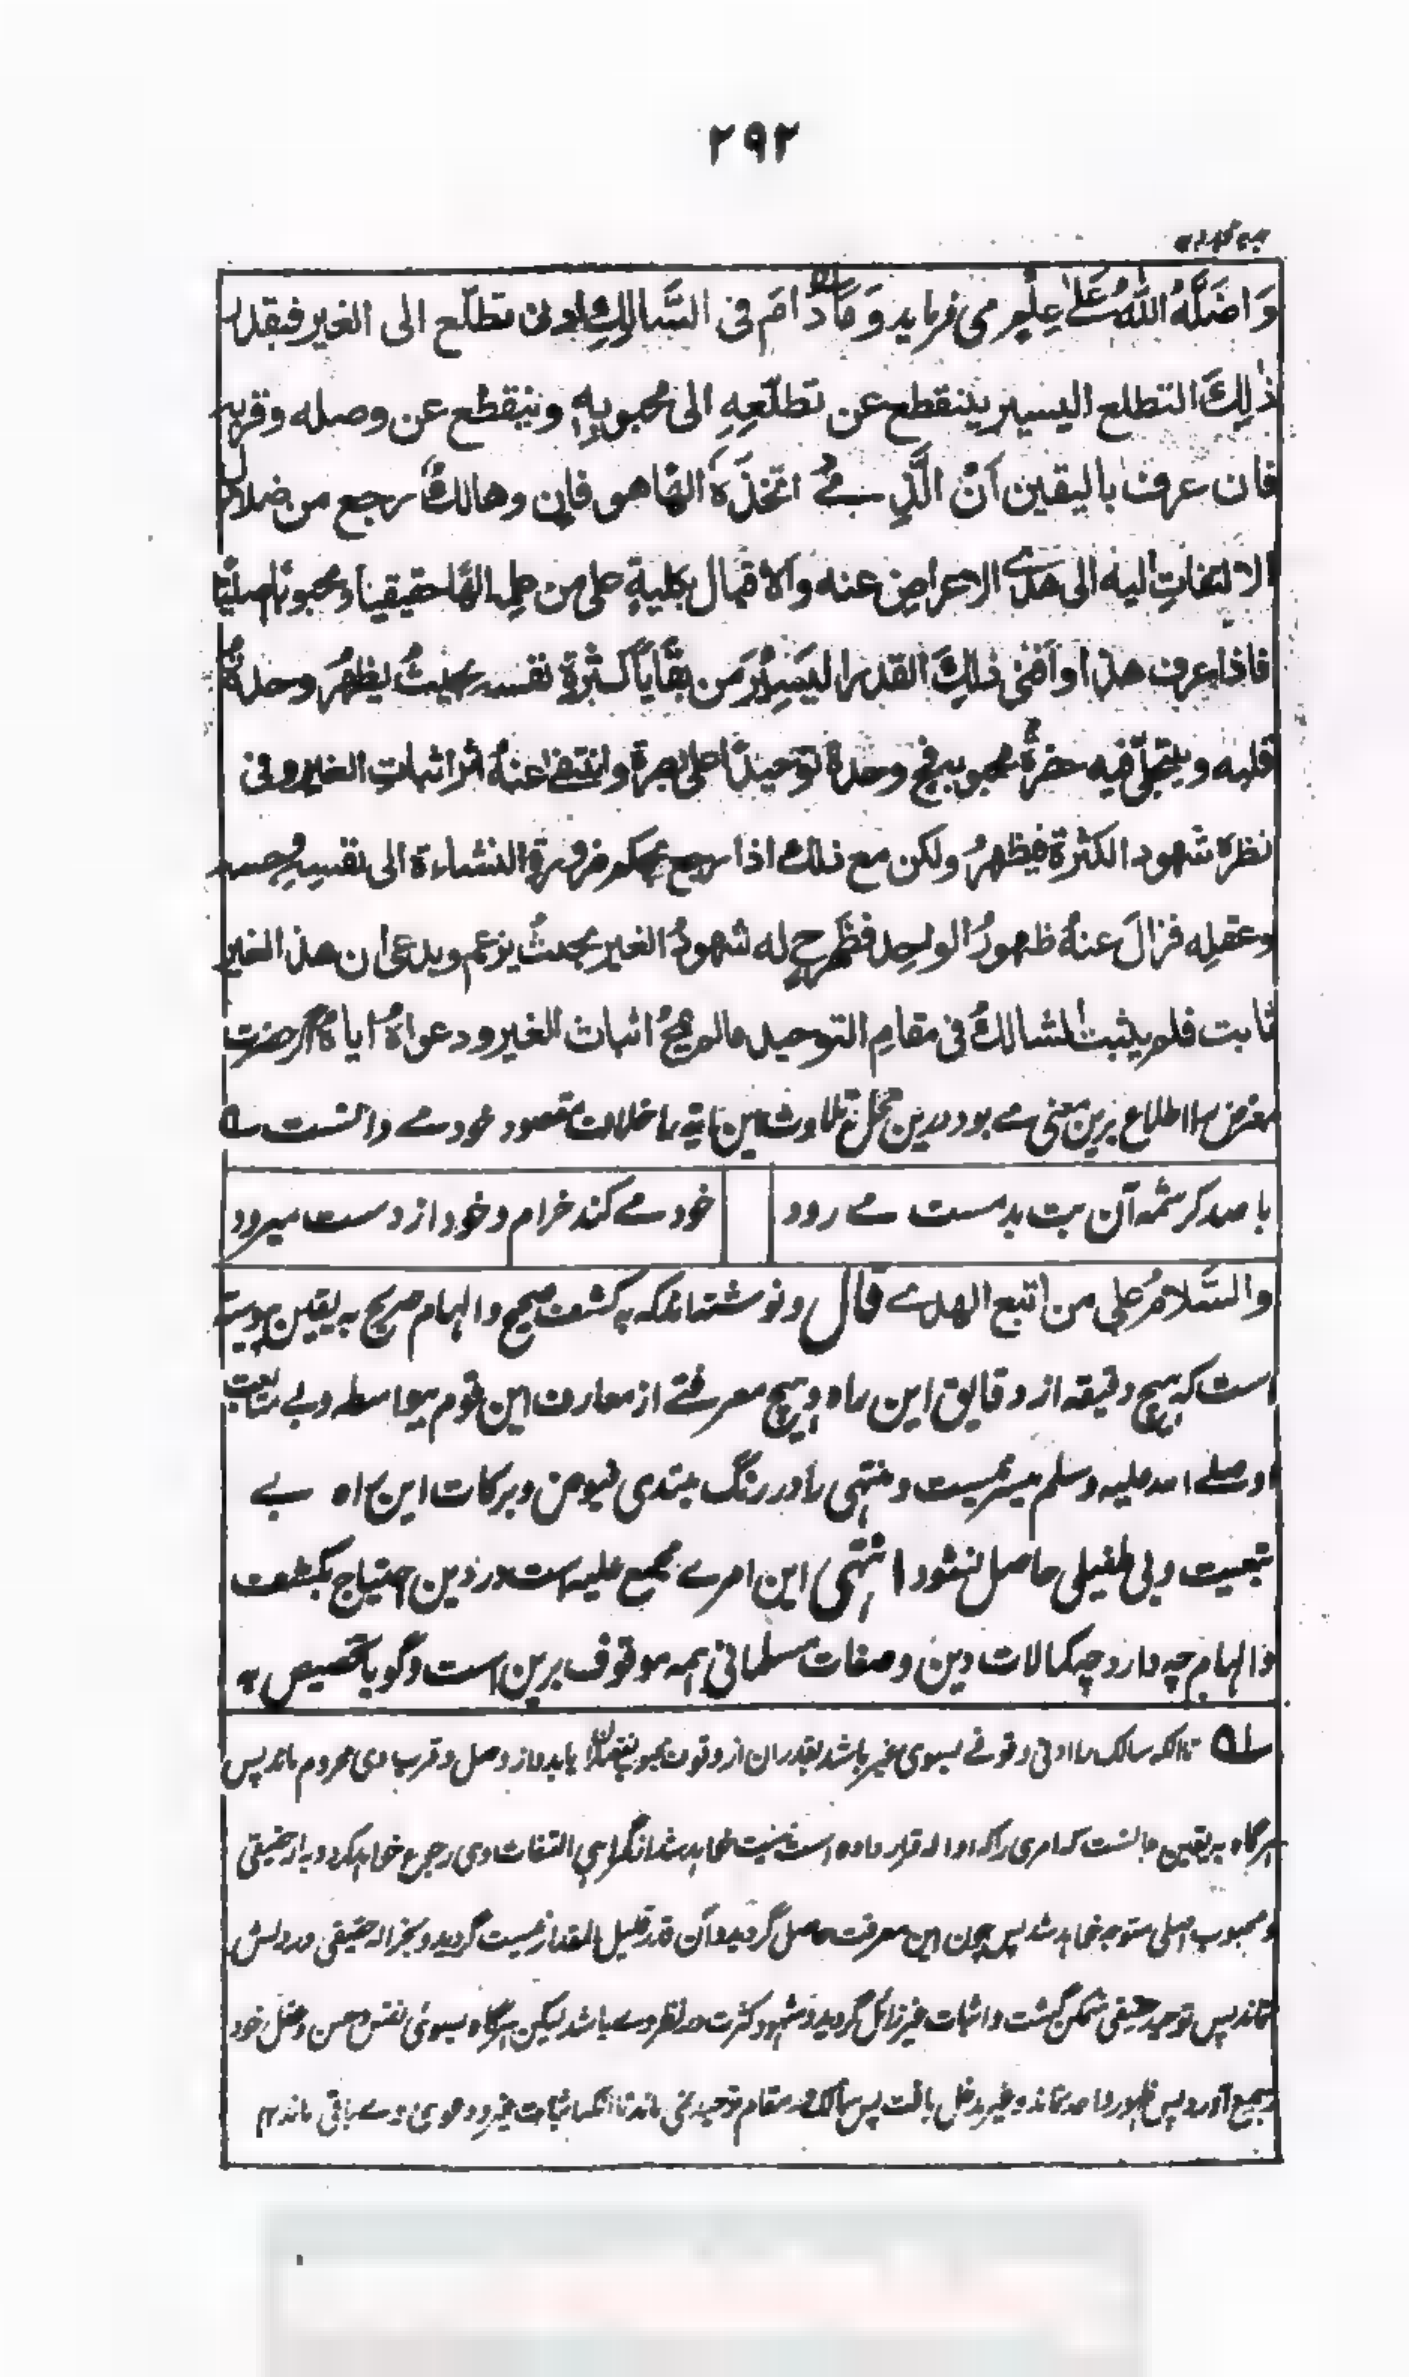 ۲۹۲
وَاَضَلَّهُ اللّٰهُ عَلٰی عِلْمٍ می فرماید وَمَا دَامَ فی السَّالِكِ ادنی تطلّع الی الغیر فبقدر
ذٰلِكَ التطلع الیسیر ینقطع عن تطلّعِهِ الی محبوبِهٖ وینقطع عن وصله وقربه
فان عرف بالیقین اَنَّ الَّذِی اتّخذَهٗ الٰهًا هو فانٍ وهالكٌ رجع من ضلال
الالتفاتِ الیه الی هدی الاعراضِ عنه والاقبال بكلیةٍ علی من هو الٰهًا حقیقیا ومحبوبًا اصلیًّا
فاذا عرف هذا وافنی ذٰلِكَ القدر الیَسِیْرَ من بقَایَا كثرةِ نفسه بحیثُ یظهرُ وحدةٌ
قلبه ویتجلّٰی فیه حضرةُ محبوبه فح وحده توحیدًا اصلی بصرهٗ وانتفٰی عنهُ اثر اثباتِ الغیر وفی
نظرهٖ شهود الكثرة فیظهرُ ولكن مع ذلك اذا رجع بحكم ضرورةِ النشاءة الی نفسِهٖ وحسه
وعقلِه فزالَ عنهُ ظهورُ الواحِد فظَهَرَ ح له شهودُ الغیر بحیثُ یزعم ویدعی ان هذا الغیر
ثابت فلم یثبت السالكُ فی مقامِ التوحید مالم یمحُ اثبات الغیر ودعواهُ ایاهُ اگر حضرت
معترض را اطلاع برین معنی می بود درین محل تلاوت این آیه را خلاف مقصود خود می دانست ـه
با صد کرشمه آن بت بدمست می رود خود می کند خرام و خود از دست میرود
والسَّلامُ علی من اتبع الهدی قال ونوشته اند که به کشف صحیح والهام صریح به یقین پیوسته
است که هیچ دقیقه از دقایق این راه و هیچ معرفتی از معارف این قوم بیواسطه و بی متابعت
او صلی الله علیه وسلم میسر نیست و منتهی را در رنگ مبتدی فیوض و برکات این راه بی
تبعیت و بی طفیلی حاصل نشود انتهی این امری مجمع علیه است در دین احتیاج بکشف
والهام چه دارد چه کمالات دین و صفات مسلمانی همه موقوف برین است و گویا تخصیص به
ـه تا آنکه سالک را ادنی وقوفی بسوی غیر باشد بقدر آن از وقوف محبوب نقصان یابد و از وصل و قرب وی محروم ماند پس
هرگاه به یقین دانست که امری را که او اله قرار داده است نیست خواهد شد از گمراهی التفات وی رجوع خواهد کرد و به اله حقیقی
و محبوب اصلی متوجه خواهد شد پس چون این معرفت حاصل گردید و آن قدر قلیل المقدار نیست گردید و بجز اله حقیقی در دلش
نماند پس توحید حقیقی متمکن گشت و اثبات غیر زائل گردید و شهود کثرت در نظر وی باشد لیکن هرگاه بسوی نفس و حس و عقل خود
رجوع آورد پس ظهور واحد نماند و غیر دخل یافت پس سالک در مقام توحید نمی ماند تا آنکه اثبات غیر و دعوی وی باقی ماند ۱۲